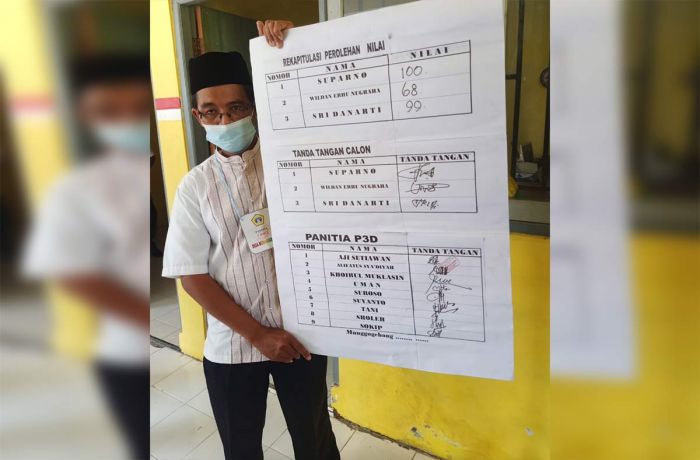 REKAPITULASI PEROLEHAN NILAI
NOMOR NAMA NILAI
1 SUPARNO 100
2 WILDAN ERHU NUGRAHA 68
3 SRI DANARTI 99
TANDA TANGAN CALON
NOMOR NAMA TANDA TANGAN
1 SUPARNO
2 WILDAN ERHU NUGRAHA
3 SRI DANARTI
PANITIA P3D
NOMOR NAMA TANDA TANGAN
1 AJI SETIAWAN
2 ALIFATUS SYA'DIYAH
3 KHOIRUL MUKLASIN
4 UMAN
5 SUROSO
6 SUYANTO
7 TANI
8 SHOLEH
9 NOKIP
Manggogehang